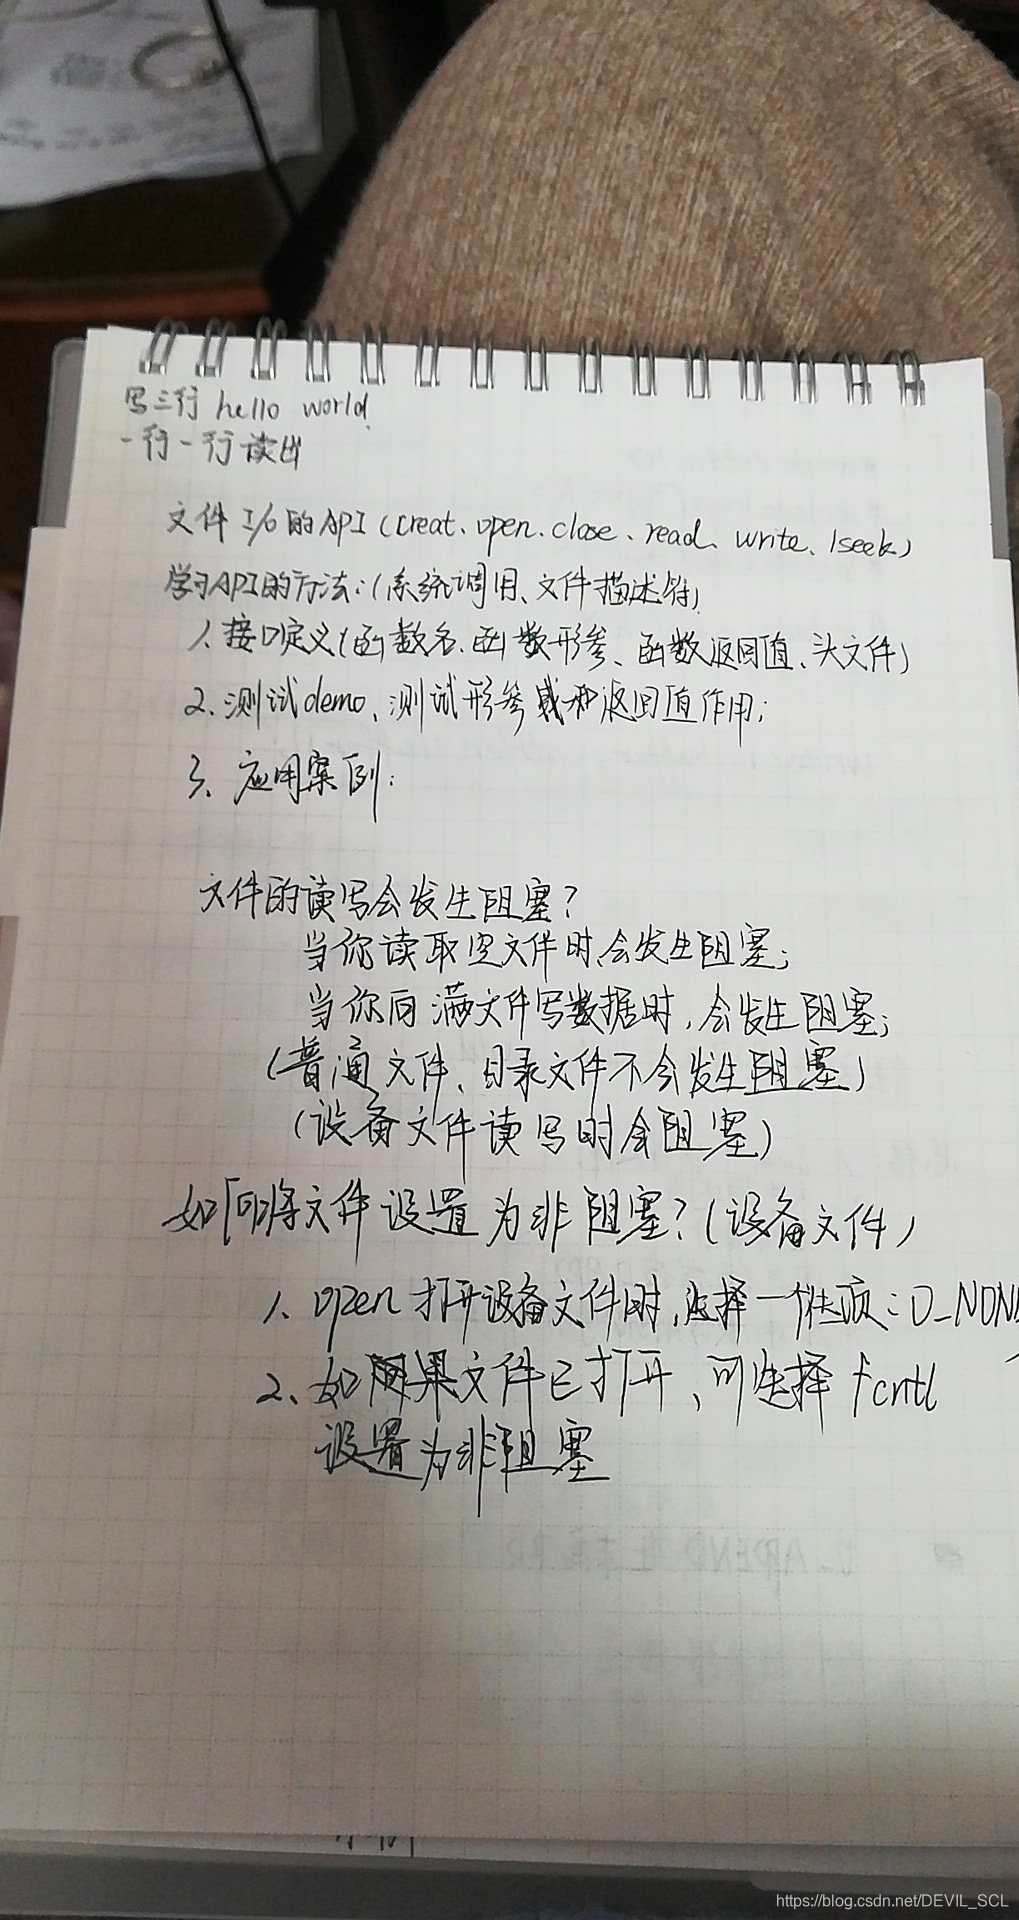 写三行 hello world
一行一行读出
文件I/O的API(creat、open、close、read、write、lseek)
学习API的方法:(系统调用、文件描述符)
1、接口定义(函数名、函数形参、函数返回值、头文件)
2、测试demo、测试形参或和返回值作用;
3、应用案例:
文件的读写会发生阻塞?
当你读取空文件时,会发生阻塞;
当你向满文件写数据时,会发生阻塞;
(普通文件、目录文件不会发生阻塞)
(设备文件读写时会阻塞)
如何将文件设置为非阻塞?(设备文件)
1、open打开设备文件时,选择一个选项:O_NON
2、如果文件已打开、可选择fcntl
设置为非阻塞
https://blog.csdn.net/DEVIL_SCL